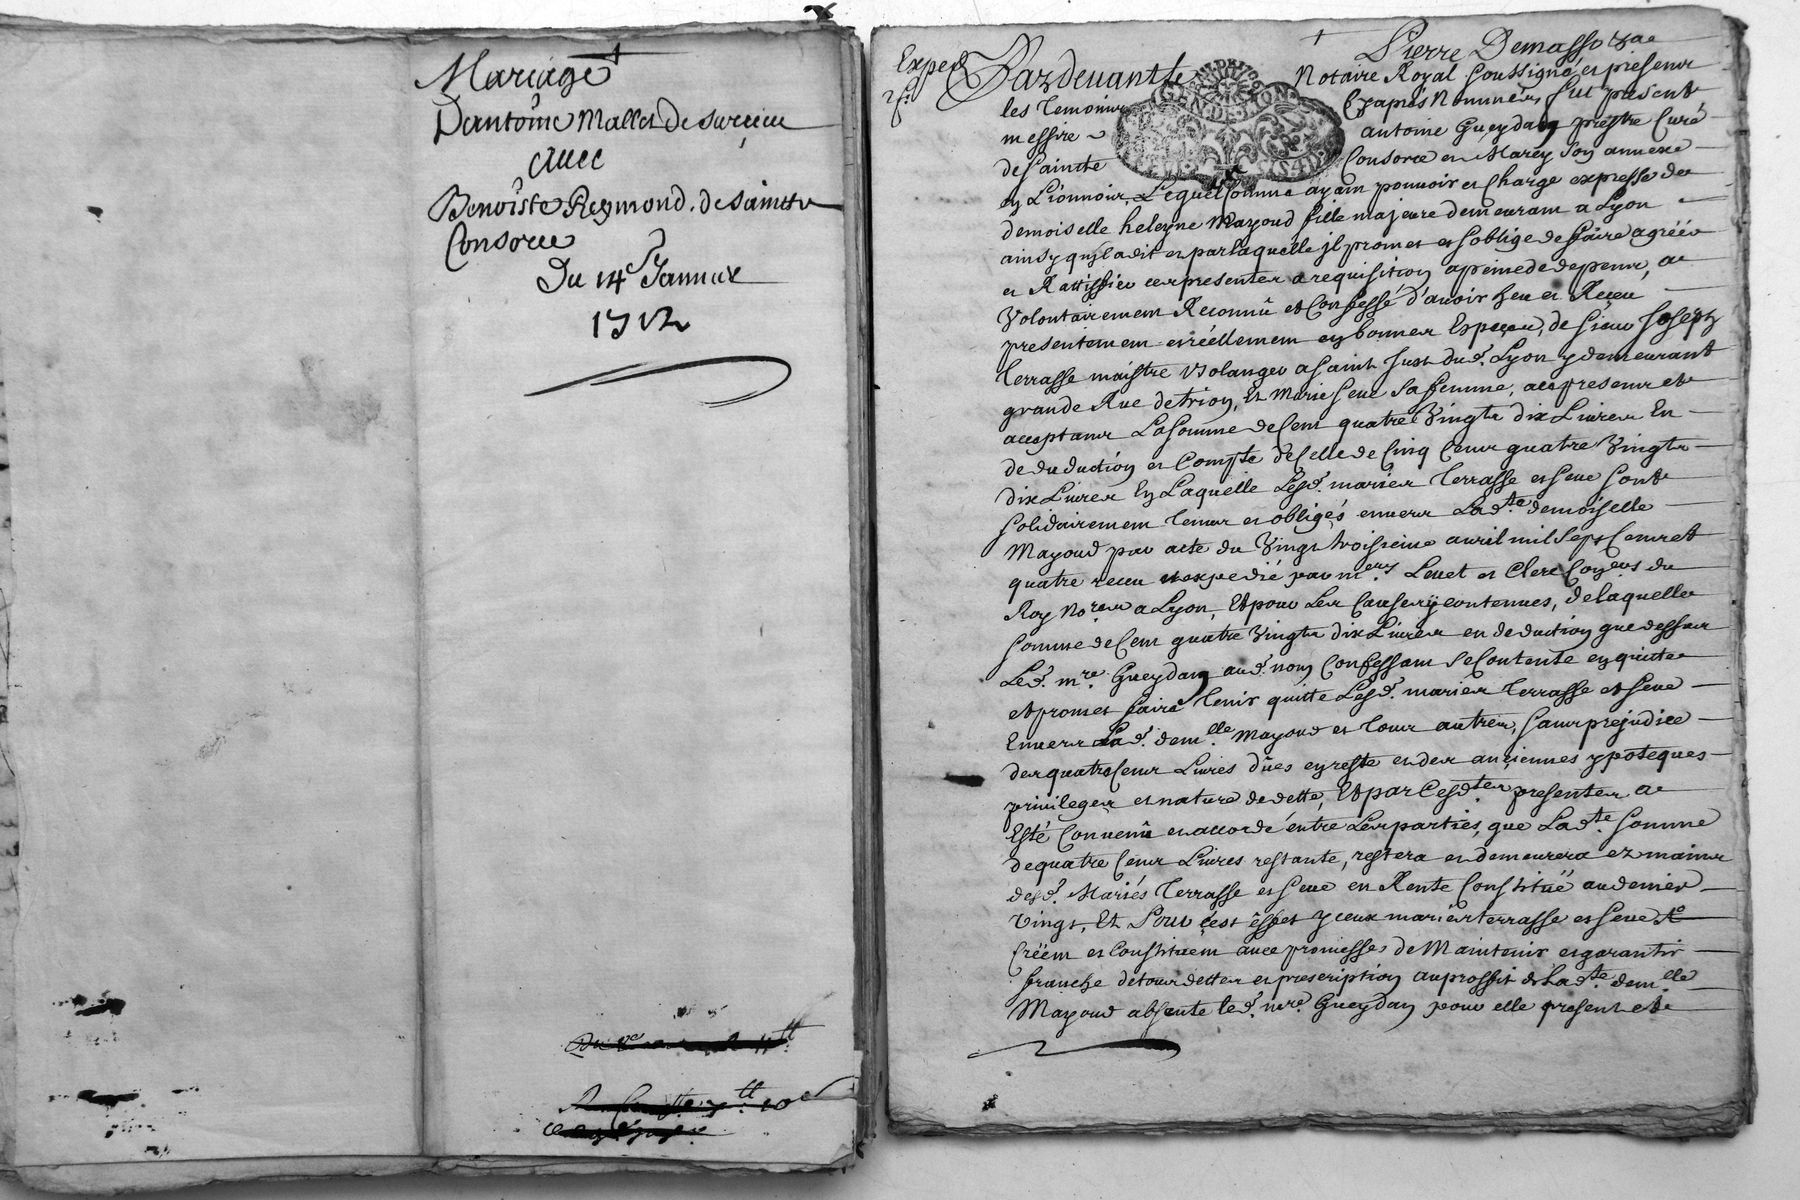 Mariage
Dantoine Mallet de surcieu
avec
Benoiste Reymond de saincte
Consorce
Du 14e Janvier
1712
Expedé
Pardevant
Pierre Demasso
Notaire Royal soussigné et presens
les temoins
Cy apres Nommés, fut present
messire
antoine Gueydan prestre Curé
de saincte
Consorce et Marcy son annexe
en Lionnois, Lequel comme ayant pouvoir et charge expresse de
demoiselle heleyne Mayoud fille majeure demeurant a Lyon
ainsy quil a dit et par laquelle jl promet et soblige de faire agréér
et Rattiffier ces presentes a requisition a peine de depens, a
Volontairement Reconnû et Confessé d'avoir heu et Receu
presentement et réellement en bonnes Especes, de sieur Joseph
Terrasse maistre Bolanger a saint Just dud. Lyon y demeurant
grande Rue de trion, Et Marie seve sa femme, acc presens et
acceptans La somme de Cent quatre Vingts dix Livres En
deduduction et Compte de Celle de Cinq Cens quatre Vingts
dix Livres En Laquelle Lesd. mariés Terrasse et seve sont
solidairement tenus et obligés envers Lad.te demoiselle
Mayoud par acte du Vingt troisieme avril mil sept Cens et
quatre receu et expedié par m.ers Levet et Clerc Con.ers du
Roy No.res a Lyon, Et pour Les Causes y contenues, de laquelle
somme de Cent quatre Vingts dix Livres en deduction que dessus
Led. m.re Gueydan aud. nom Confessant se Contente en quitte
et promet faire tenir quitte Lesd. mariés Terrasse et seve
Envers Lad. dem.lle Mayoud et tous autres, sans prejudice
des quatre Cens Livres dûes en reste et des anciennes ypoteques
privileges et nature de dette, Et par Cesd.tes presentes a
Esté Convenû et accordé entre Les parties, que Lad.te somme
de quatre Cens Livres restante, restera et demeurera ez mains
desd. Mariés Terrasse et seve en Rente Constituëe au denier
Vingt, Et Pour cest êffet yceux mariés terrasse et seve
Créént et Constituent avec promesses de Maintenir et garantir
franche de tous dettes et prescription au proffit de Lad.te dem.lle
Mayoud absente led. m.re Gueydan pour elle present et